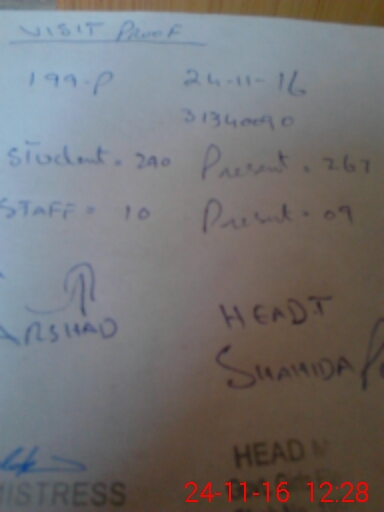 VISIT PROOF
199-P 24-11-16
31340090
Student = 290 Present = 267
STAFF = 10 Present = 09
ARSHAD HEADT
SHAHIDA
HEAD
MISTRESS
24-11-16 12:28